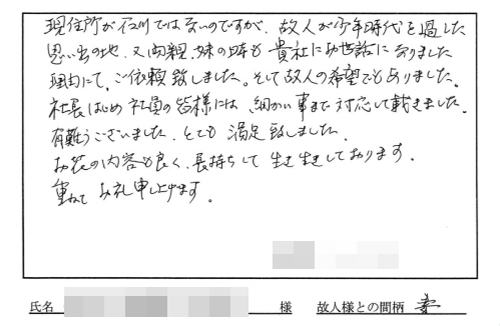 現住所が石川ではないのですが、故人が少年時代を過した
思い出の地、又両親、妹の時も貴社にお世話になりました
理由にて、ご依頼致しました。そして故人の希望でもありました。
社長はじめ社員の皆様には、細かい事まで対応して載きました。
有難うございました。とても満足致しました。
お花の内容も良く、長持ちして生き生きしております。
重ねてお礼申し上げます。
氏名 様 故人様との間柄 妻